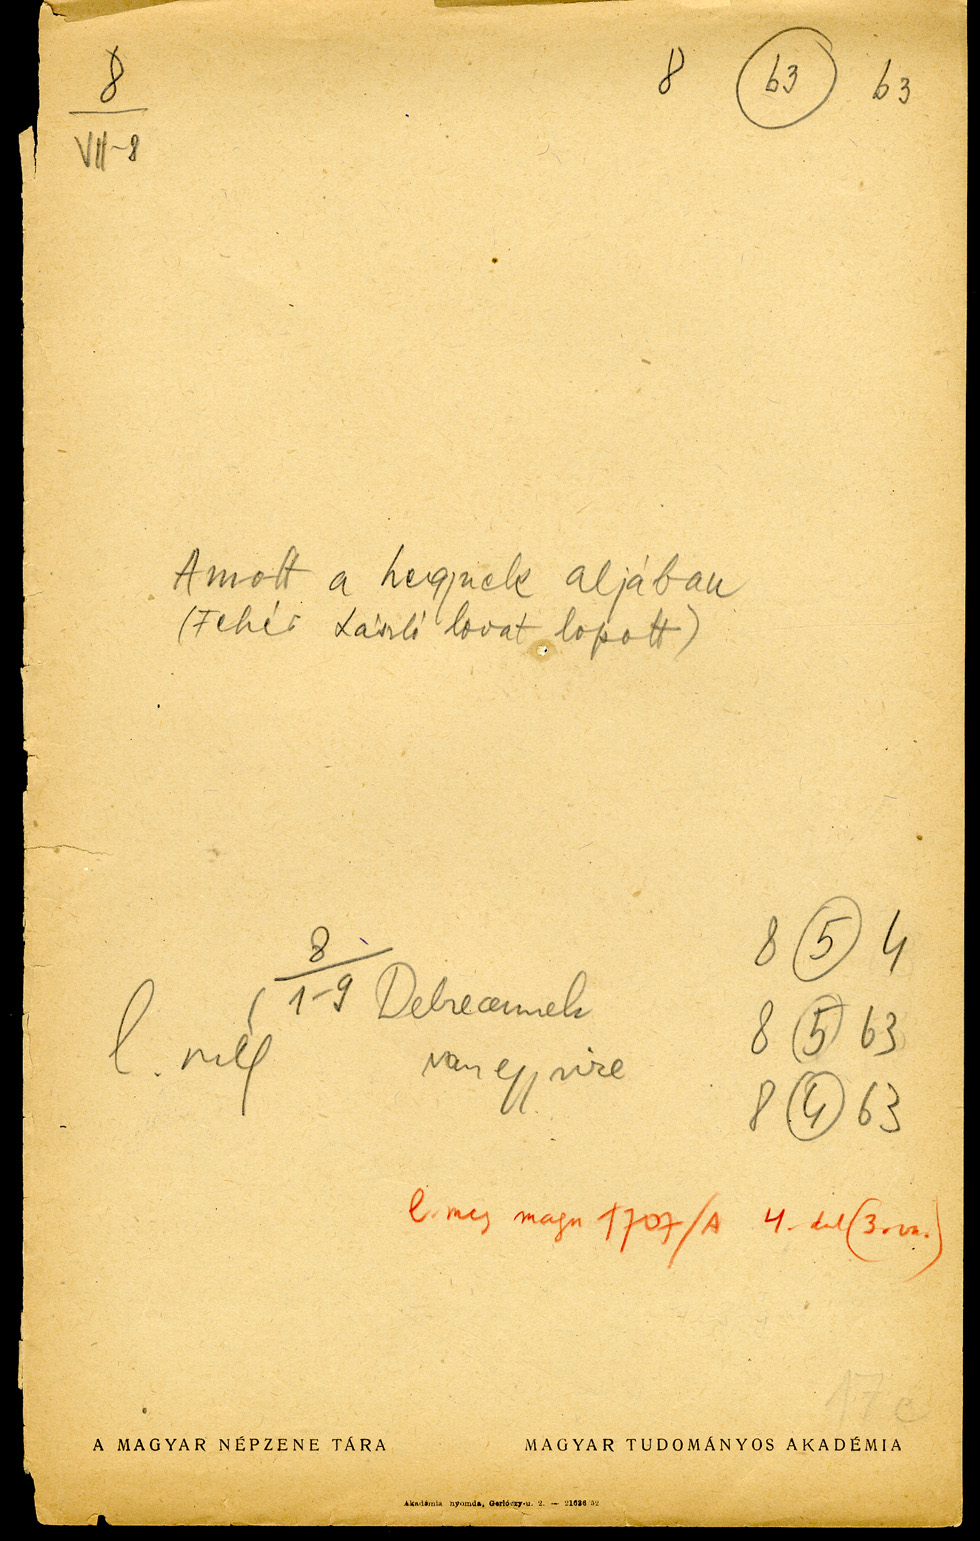 8 8 (63) 63
VII-8
Amott a hegynek aljában
(Fehér László lovat lopott)
8 8 (5) 4
1-9 Debrecennek 8 (5) 63
l. még van egy vize 8 (4) 63
l. még magn 1707/A 4. dal (3. va.)
17 c
A MAGYAR NÉPZENE TÁRA MAGYAR TUDOMÁNYOS AKADÉMIA
Akadémia nyomda, Gerlóczy-u. 2. — 21626 52